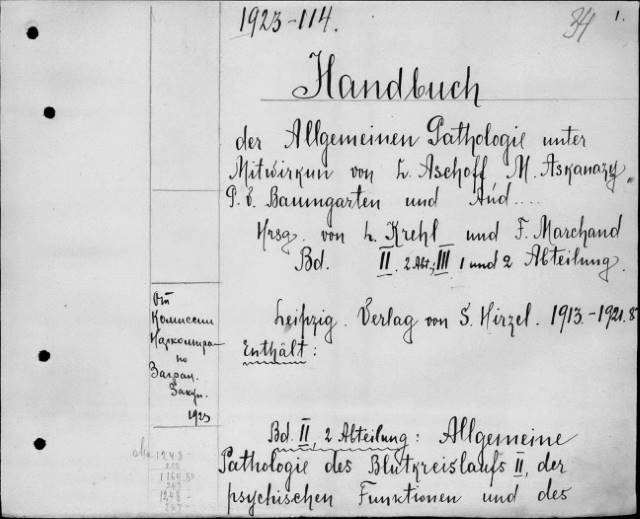 1923-114.
34 1.
Handbuch
der Allgemeinen Pathologie unter
Mitwirkun von L. Aschoff M. Askanazy
P. v. Baumgarten und And....
Hrsg. von L. Krehl und F. Marchand
Bd. II. 2 Abt., III 1 und 2 Abteilung.
От
Комиссии
Наркомпра-
по
Загран.
Закуп.
1923
Leipzig. Verlag von S. Hirzel. 1913.-1921. 8°
Enthält:
Bd. II, 2 Abteilung: Allgemeine
Pathologie des Blutkreislaufs II, der
psychischen Funktionen und des
1248
1248